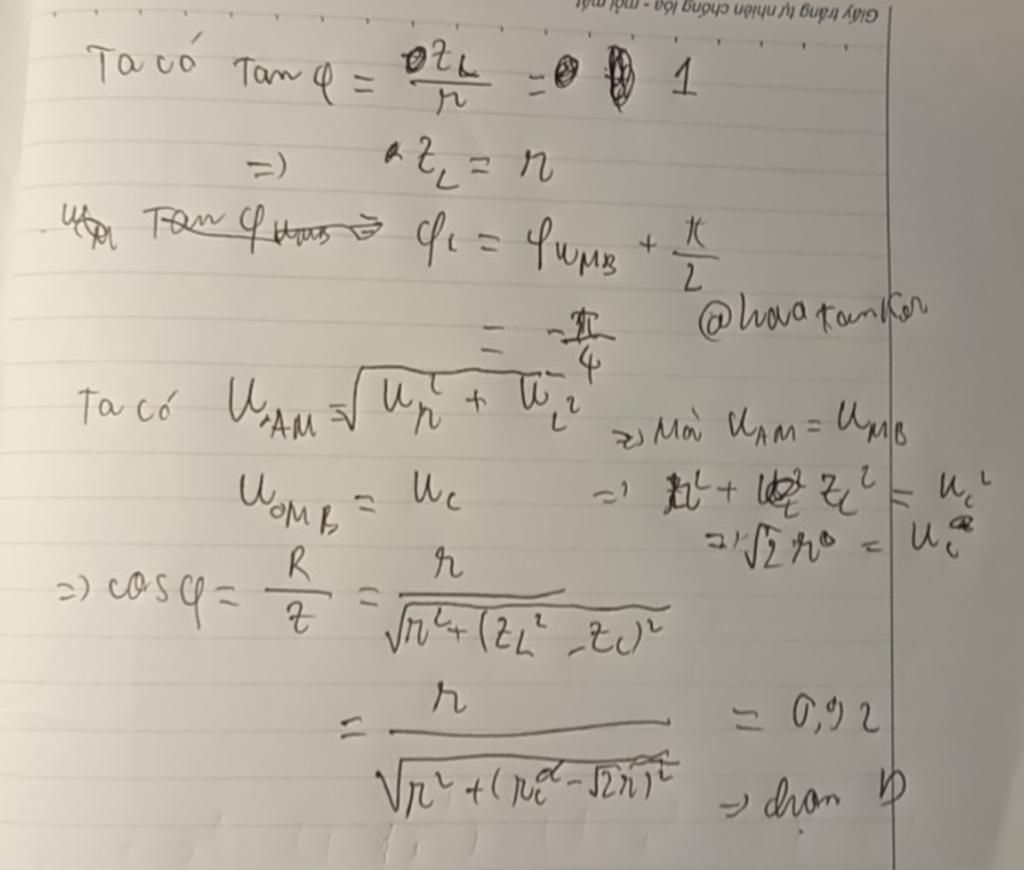 Giấy trắng tự nhiên chống lóa - mỏi mắt
Ta có Tan φ = Z_L / r = 1
=> Z_L = r
φ_i = φ_{u_{MB}} + π/2
= -π/4 @hoatanKer
Ta có U_{AM} = √(U_r² + U_L²) => Mà U_{AM} = U_{MB}
U_{0MB} = U_C => r² + Z_L² = U_C²
=> √2 r = U_C
=> cos φ = R / Z = r / √(r² + (Z_L² - Z_C)²)
= r / √(r² + (r - √2 r)²) = 0,92
=> chọn D